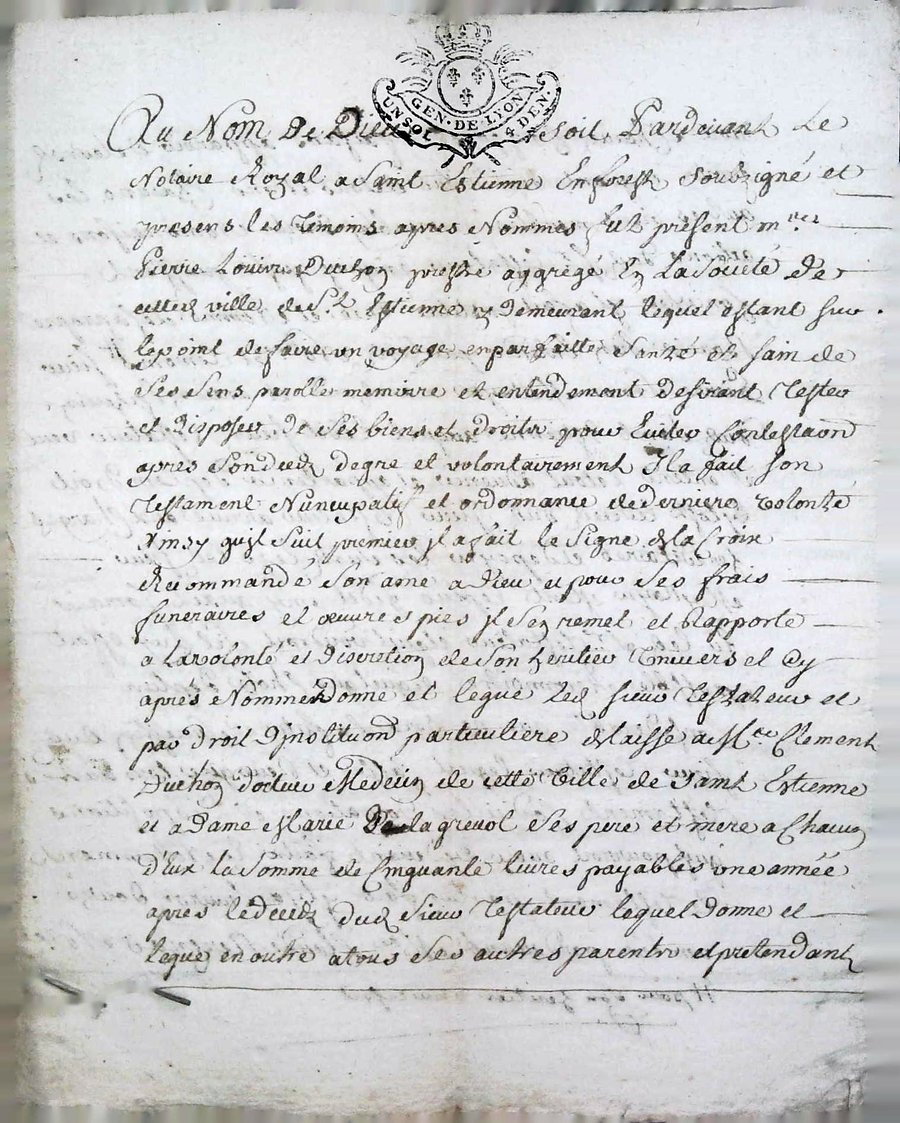 GEN · DE LYON
UN SOL 4 DEN.
Au Nom De Dieu soit Pardevant Le
Notaire Royal a Saint Estienne En forest Soubzigné et
presens les temoins apres Nommes fut présent
Pierre Louis Duchon prestre aggregé En La Societé De
ville de St Estienne y Demeurant lequel estant sur
le point de faire un voyage en parfaitte Santé et sain de
Ses Sens parolle memoire et entendement Desirant Tester
et Disposer De Ses biens et droits pour Eviter Contestaon
apres Son decedz degre et volontairement Il a fait son
Testament Nuncupatif et ordonnance de derniere volonté
qui Suit premier jl a fait le Signe dela Croix
Recommandé Son ame a Dieu et pour Ses frais
funeraires et œuvres pies jl Sen remet et Rapporte
a La volonté et Discretion de Son heritier Univers el Cy
aprés Nommé Donne et legue led sieur Testateur et
par droit Dinstituon particuliere delaisse a Mre Clement
Duchon docteur Medecin de cette Ville de Saint Estienne
et a Dame Marie De lagrevol Ses pere et mere a Chacun
D'Eux la Somme de Cinquante livres payables une année
apres le decedz dud Sieur Testateur lequel Donne et
legue en outre a tous Ses autres parents et pretendant